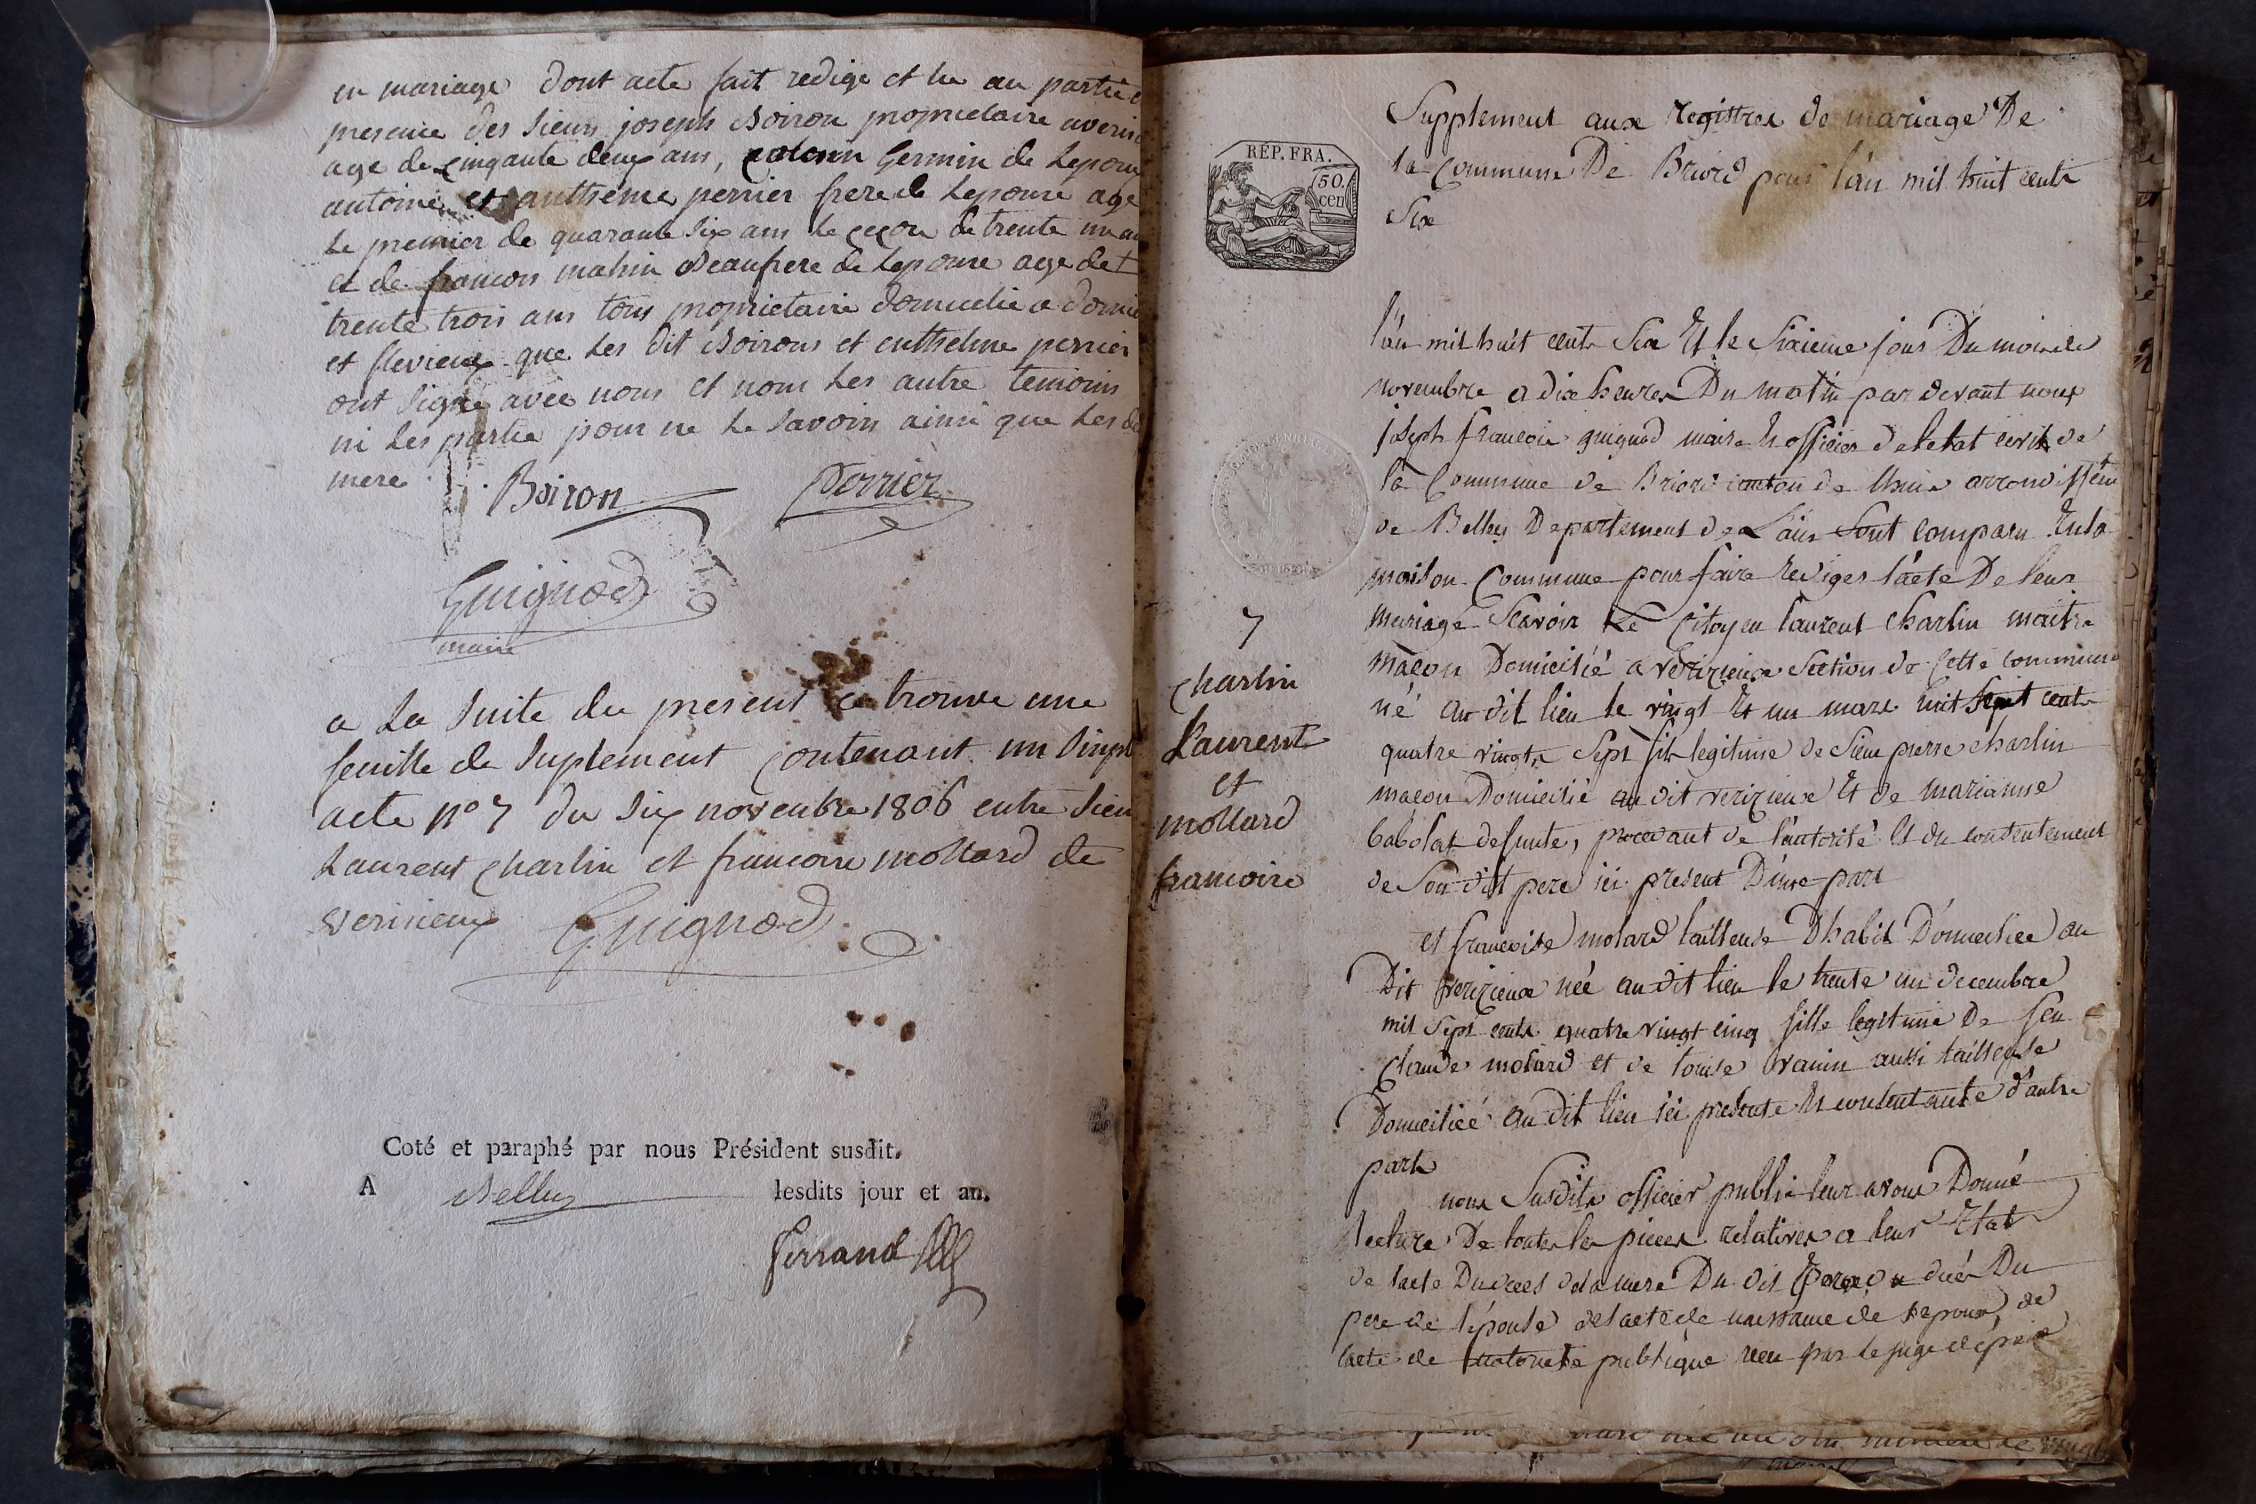 en mariage dont acte fait redige et lu au partie
presence des sieurs joseph Boiron proprietaire
age de cinqante deux ans, Germin de Lepouse
antoine et anthseme perrier frere de Lepouse age
Le premier de quarante six ans Le de trente un
et de francois mahin Beaufrere de Lepouse age de
trente trois ans tous proprietaire domicelie a
et flevieux que Les dit Boirons et enthelme perrier
ont signe avec nous et nom Les autre temoins
ni Les partie pour ne Le savoir ainsi que Les
mere
Boiron Perrier
Guignod
maire
a La suite du present ce trouve une
feuille de suplement contenant un
acte no 7 du six novembre 1806 entre sieur
Laurent charlin et francoire mollard de
verizieux Guignod
Coté et paraphé par nous Président susdit.
A Belley lesdits jour et an.
ferrand
Supplement aux registres de mariage De
la Commune De Briord pour l'an mil huit cents
Six
RÉP. FRA.
50.
cen
l'an mil huit cents Six Et le Sixieme jour Du mois de
novembre a dix heures Du matin par devant nous
joseph francois guignod maire Et officier de letat civil de
la Commune de Briord canton de lhuis arrondissem
de Belley Departement de Lain Sont comparu En la
maison Commune pour faire rediger l'acte De leur
mariage Scavoir Le Citoyen laurent charlin maitre
macon Domicilié a verizieux Section de Cette commune
né au dit lieu le vingt Et un mars mil Sept cents
quatre vingts Sept fils legitime de Sieur pierre charlin
macon Domicilié au dit verizieux Et de marianne
babolat defunte, procedant de l'autorité Et du consentement
de Son dit pere ici present D'une part
7
charlin
Laurent
et
mollard
francoire
et francoise molard tailleuse D'habit Domiciliee au
Dit verizieux née au dit lieu le trente un decembre
mil Sept cents quatre vingt cinq fille legitime De feu
Claude molard et de louise vanin aussi tailleuse
Domiciliée au dit lieu ici presente Et consentante d'autre
part
nous Susdits officier public leur avons Donné
lecture De toutes les pieces relatives a leur Etat
de lacte Du deces de la mere Du dit Epoux du Du
pere de l'épouse de lacte de naissance de lepoux de
lacte de notoriete publique recu par le juge de paix